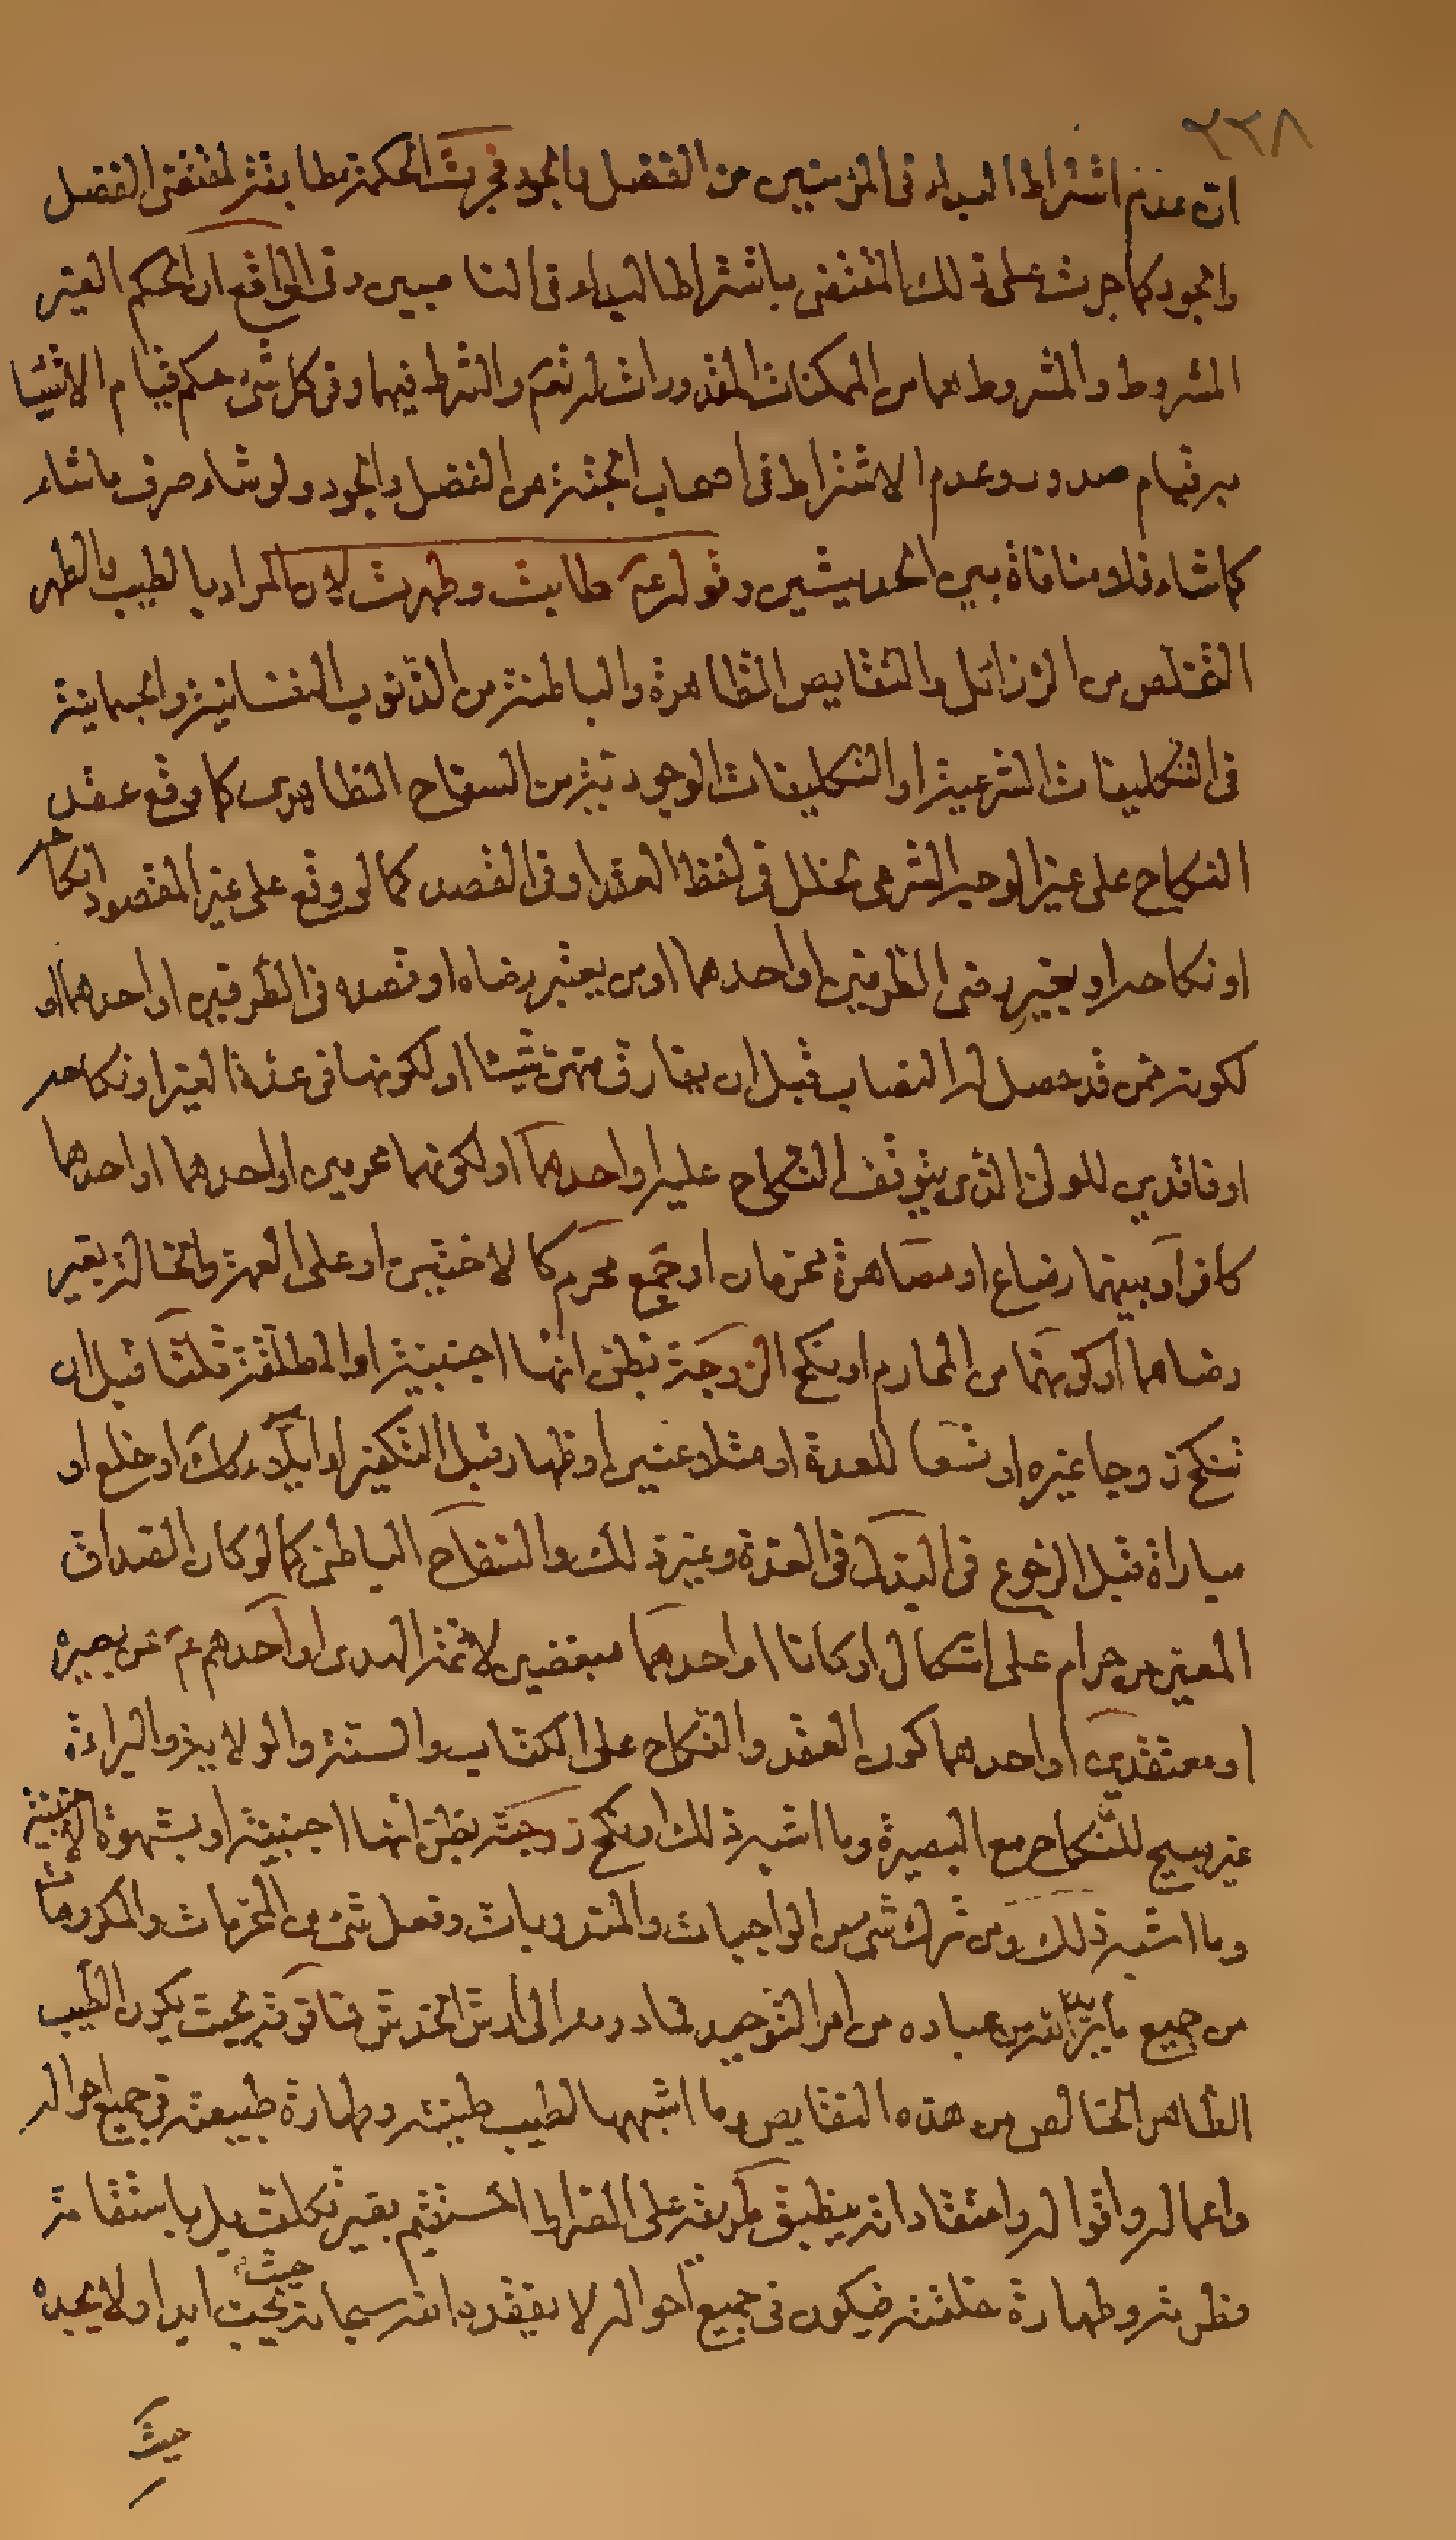 ٢٢٨
ان عدم اشتراط البداء فى المؤمنين من الفضل والجود فجرت الحكمة مطابقة لمقتضى الفضل
والجود كما جرت على ذلك المقتضى باشتراط البداء فى الناصبين وفى الواقع ان الحكم الغير
المشروط والمشروط هما من الممكنات المقدورات له تعم والشرط فيهما وفى كل شىء حكم قيام الاشيا
به قيام صدور وعدم الاشتراط فى اصحاب الجنة من الفضل والجود ولو شاء صرف ما شاء
كما شاء فلا منافاة بين الحديثين وقوله عم طابت وطهرت لان المراد بالطيب والطهر
التخلص من الرزائل والنقايص الظاهرة والباطنة من الذنوب النفسانية والجسمانية
فى التكليفات الشرعية او التكليفات الوجودية من السفاح الظاهرى كما لو وقع عقد
النكاح على غير الوجه الشرعى لخلل فى لفظ العقد او فى القصد كما لو وقع على غير المقصود انكاحه
او نكاحه او بغير رضى الطرفين او احدهما او من يعتبر رضاه او قصده فى الطرفين او احدهما او
لكونه ممن قد حصل له النصاب قبل ان يفارق منهن شيئا او لكونها فى عدة الغير او نكاحه
او فاقدين للولى الذى يتوقف النكاح عليه او احدهما او لكونهما محرمين او احدهما او احدهما
كافر او بينهما رضاع او مصاهرة محرمان او جمع محرم كالاختين او على العمة والخالة بغير
رضاهما او كونهما من المحارم او ينكح الزوجة بظن انها اجنبية او المطلقة ثلثا قبل ان
تنكح زوجا غيره او تسعا للعدة او مثلا عنين او ظهار قبل التكفير او ايلاء كك او خلع او
مباراة قبل الرجوع فى البذل فى العدة وغير ذلك والسفاح الباطن كما لو كان الصداق
المعين من حرام على اشكال او كانا او احدهما مبغضين لائمة الهدى او احدهم عم عن بصيرة
او معتقدين او احدهما كون العقد والنكاح على الكتاب والسنة والولاية والبراءة
غير مبيح للنكاح مع البصيرة وما اشبه ذلك او نكح زوجته بظن انها اجنبية او بشهوة الاجنبية
وما اشبه ذلك ومن ترك شىء من الواجبات والمندوبات وفعل شىء من المحرمات والمكروهات
من جميع ما يريد الله من عباده من امر التوحيد فما دونه الى ارش الخدش فما فوقه بحيث يكون الطيب
الطاهر الخالص من هذه النقايص وما اشبهها لطيب طينته وطهارة طبيعته فى جميع احواله
واعماله واقواله واعتقاداته ينطبق طريقه على الصراط المستقيم بغير تكلف بل باستقامة
فطرته وطهارة خلقته فيكون فى جميع احواله لا يفقده الله سبحانه حيث يحب ابدا ولا يجده
حيث